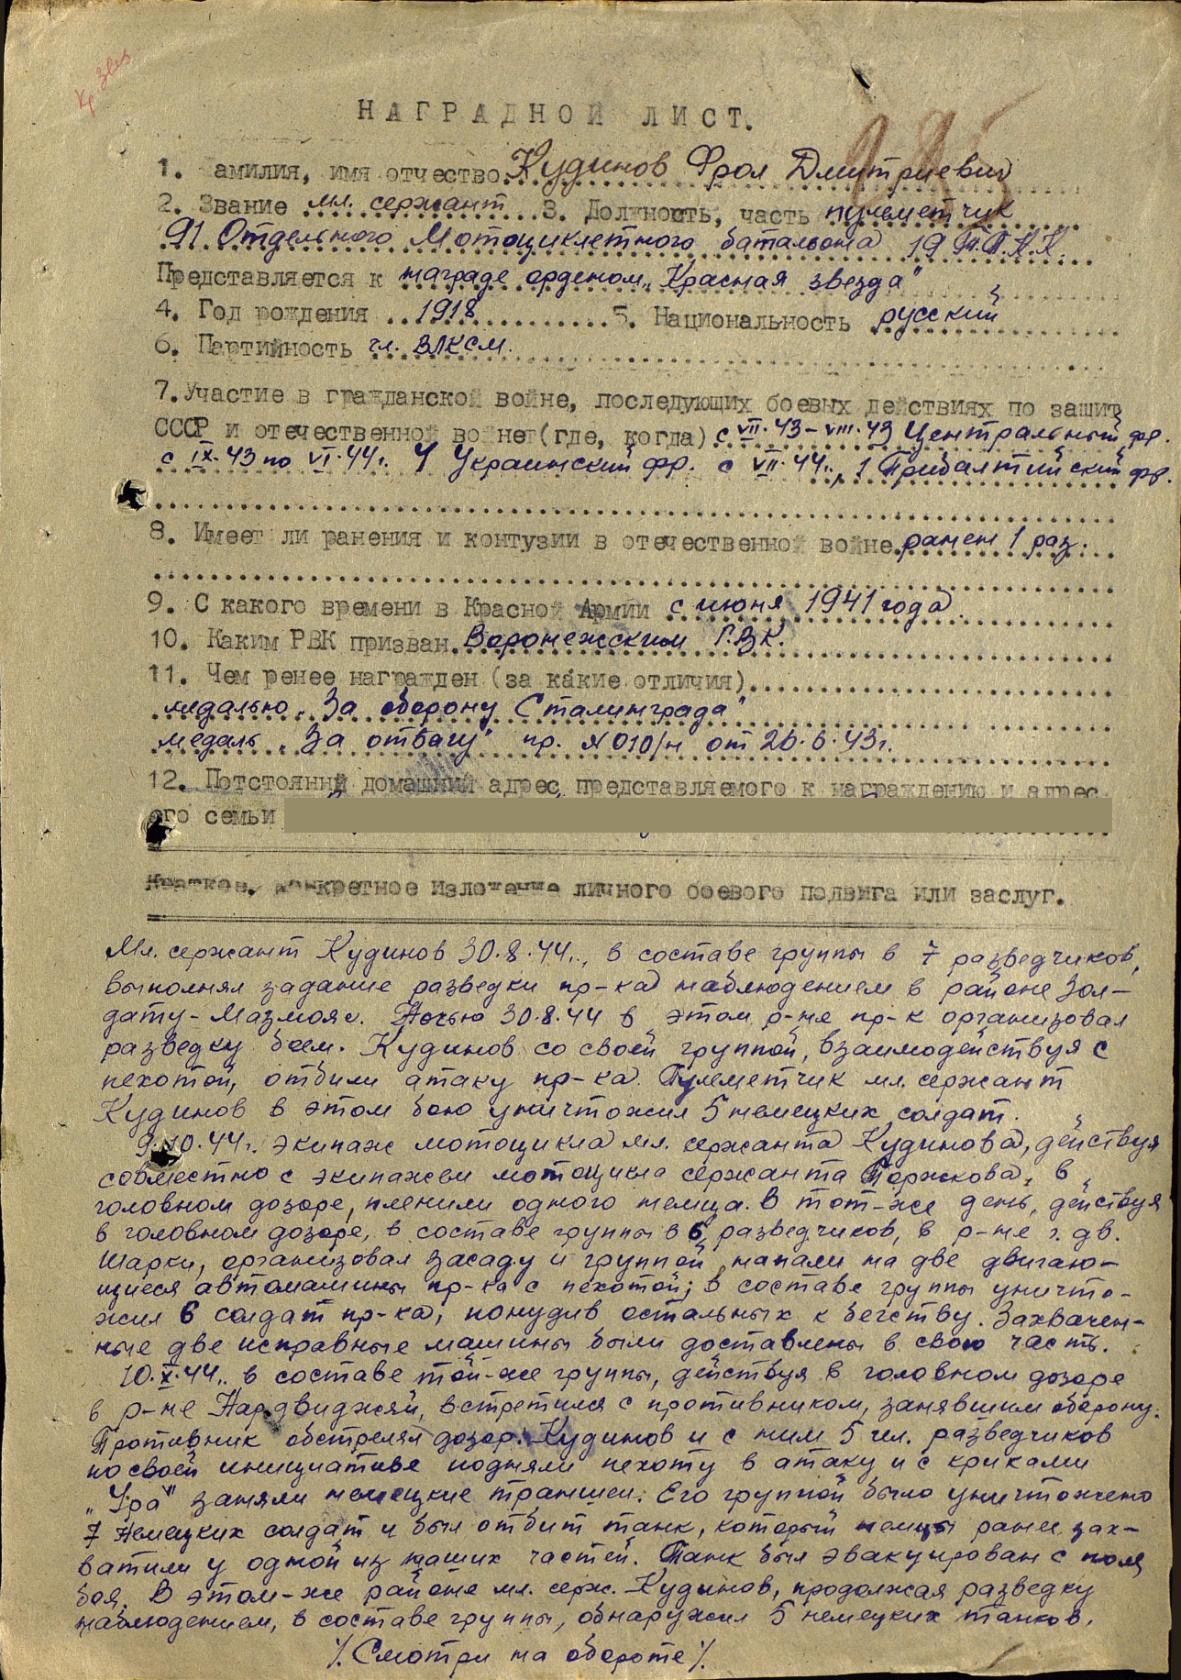 Кр. Звез
НАГРАДНОЙ ЛИСТ.
1. амилия, имя отчество Кудинов Фрол Дмитриевич
2. Звание мл. сержант 3. Должность, часть пулеметчик
91 Отдельного Мотоциклетного батальона 19
Представляется к награде орденом „Красная звезда"
4. Год рождения 1918 5. Национальность русский
6. Партийность чл. ВЛКСМ.
7. Участие в гражданской войне, последующих боевых действиях по защит
СССР и отечественной войнет (где, когда) с VII.43 – VIII.43 Центральный фр.
с IX.43 по VI.44г. 1 Украинский фр. с VII.44г., 1 Прибалтийский фр.
8. Имеет ли ранения и контузии в отечественной войне ранен 1 раз.
9. С какого времени в Красной Армии с июня 1941 года.
10. Каким РВК призван Воронежским Г.В.К.
11. Чем ренее награжден (за какие отличия)
медалью „За оборону Сталинграда"
медаль „За отвагу" пр. №010/н от 26.6.43г.
12. Потстоянны домашний адрес представляемого к награждению и адрес
его семьи
Краткое, конкретное изложение личного боевого подвига или заслуг.
Мл. сержант Кудинов 30.8.44г., в составе группы в 7 разведчиков,
выполнял задание разведки пр-ка наблюдением в районе Зол-
дату-Мазмояс. Ночью 30.8.44 в этом р-не пр-к организовал
разведку боем. Кудинов со своей группой, взаимодействуя с
пехотой, отбили атаку пр-ка. Пулеметчик мл. сержант
Кудинов в этом бою уничтожил 5 немецких солдат.
9.10.44г. экипаж мотоцикла мл. сержанта Кудинова, действуя
совместно с экипажем мотоцикла сержанта в
головном дозоре, пленили одного немца. В тот-же день, действуя
в головном дозоре, в составе группы в 6 разведчиков, в р-не г. дв.
Шарки, организовал засаду и группой напали на две двигаю-
щиеся автомашины пр-ка с пехотой; в составе группы уничто-
жил 6 солдат пр-ка, понудив остальных к бегству. Захвачен-
ные две исправные машины были доставлены в свою часть.
10.X.44г. в составе той-же группы, действуя в головном дозоре
в р-не встретился с противником, занявшим оборону.
Противник обстрелял дозор. Кудинов и с ним 5 чел. разведчиков
по своей инициативе подняли пехоту в атаку и с криками
„Ура" заняли немецкие траншеи. Его группой было уничтожено
7 немецких солдат и был отбит танк, который немцы ранее зах-
ватили у одной из наших частей. Танк был эвакуирован с поля
боя. В этом-же районе мл. серж. Кудинов, продолжая разведку
наблюдением, в составе группы, обнаружил 5 немецких танков.
/. Смотри на обороте /.